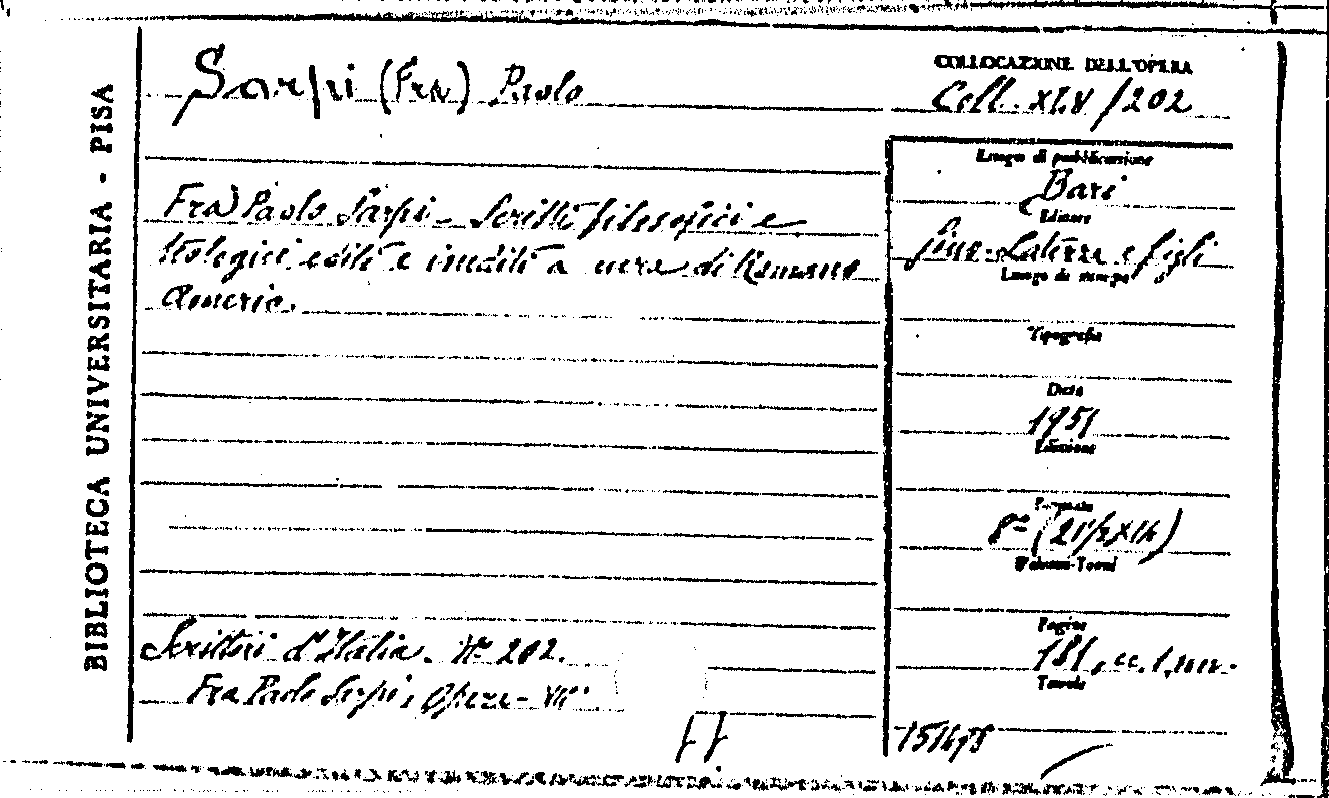 BIBLIOTECA UNIVERSITARIA - PISA
Sarpi (Fra) Paolo
COLLOCAZIONE DELL'OPERA
Coll. XLV/202
Fra Paolo Sarpi - Scritti filosofici e
teologici editi e inediti a cura di Romano
Amerio.
Scrittori d'Italia. N° 202.
Fra Paolo Sarpi, Opere -
Luogo di pubblicazione
Bari
Editore
Laterza e figli
Luogo di stampa
Tipografia
Data
1951
Edizione
Formato
8°
Volumi-Tomi
Pagine
181,
Tavole